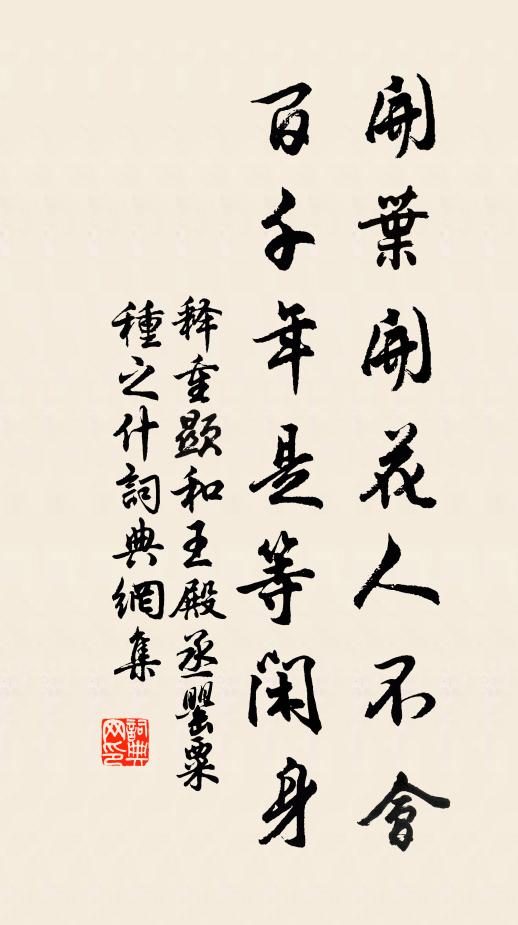 開葉開花人不會
百千年是等閑身
释重顯和王殿丞罌粟
種之什詞典網集
詞典
网印